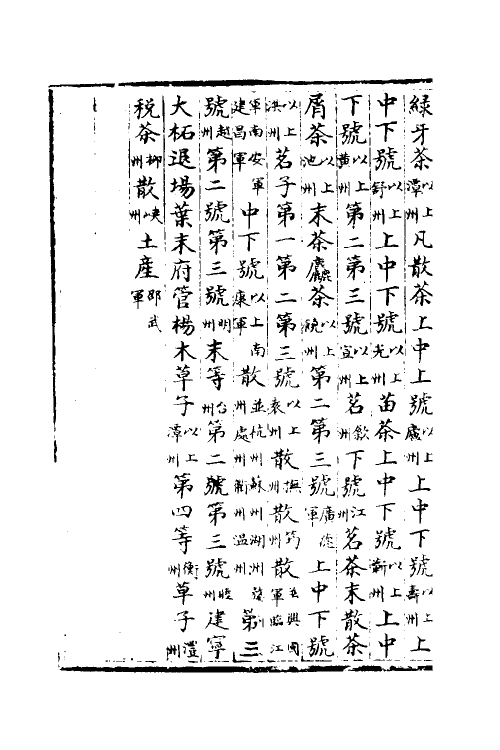 緑牙茶以上潭州凡散茶上中上號以上廬州上中下號以上壽州上
中下號以上舒州上中下號以上光州苗茶上中下號以上蘄州上中
下號以上黄州第二第三號以上宣州茗歙州下號江州茗茶末散茶
屑茶以上池州末茶麄茶以上饒州第二第三號廣德軍上中下號
以上洪州茗子第一第二第三號以上袁州散撫州散筠州散並興國軍臨江
軍南安軍建昌軍中下號以上南康軍散並杭州蘇州湖州婺州處州衢州温州第三
號越州第二號第三號明州末等台州第二號第三號睦州建寧
大柘退場葉末府管楊木草子以上潭州第四等衡州草子澧州
税茶郴州散峽州土產邵武軍